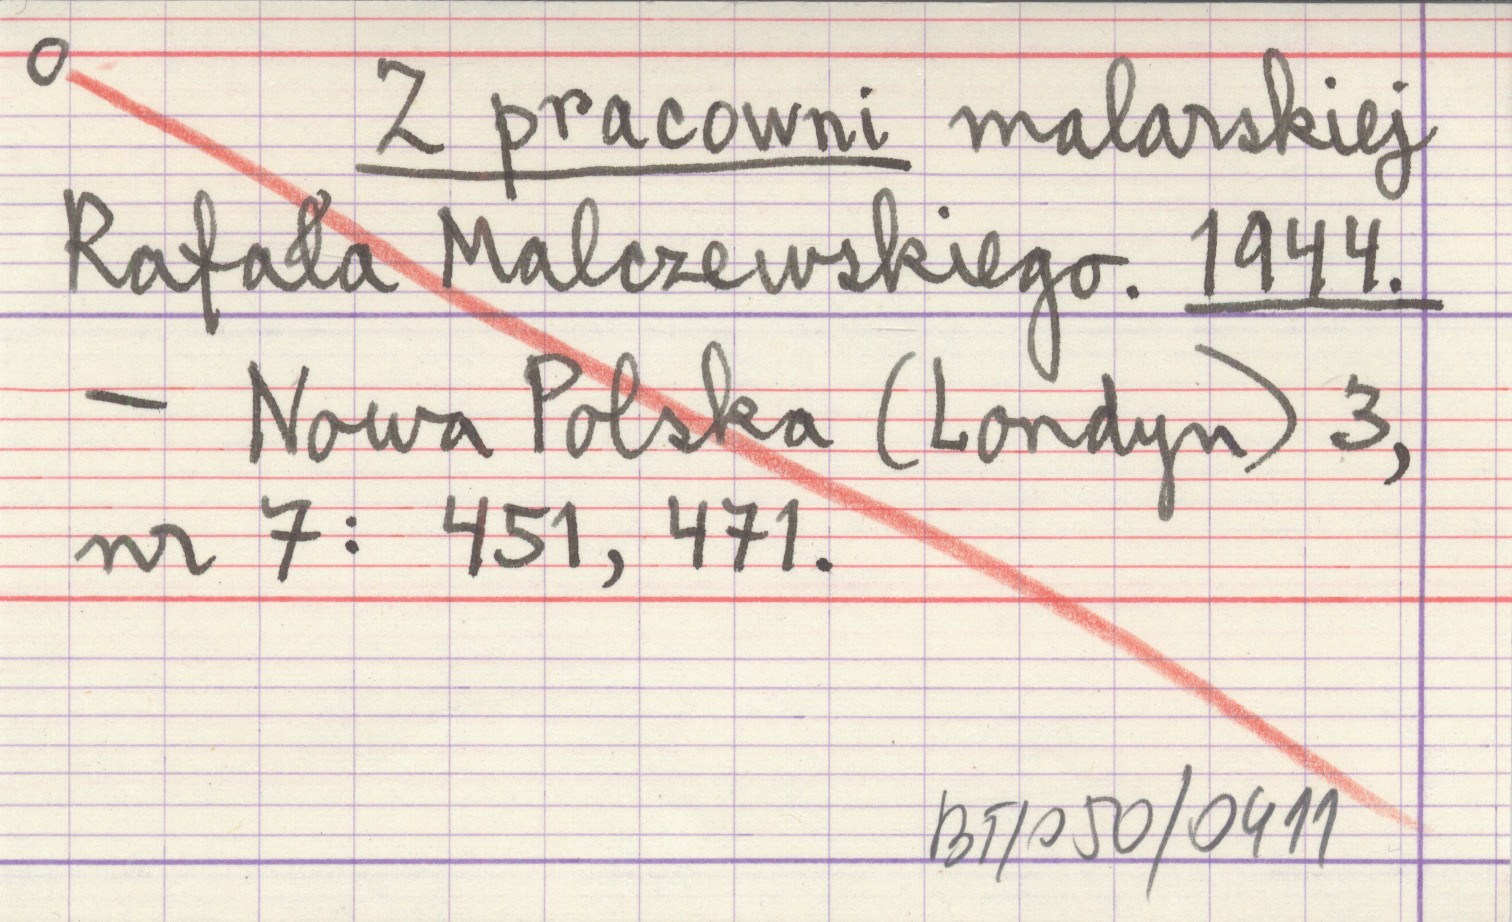 O
Z pracowni malarskiej
Rafała Malczewskiego. 1944.
— Nowa Polska (Londyn) 3,
nr 7: 451, 471.
BT/050/0411